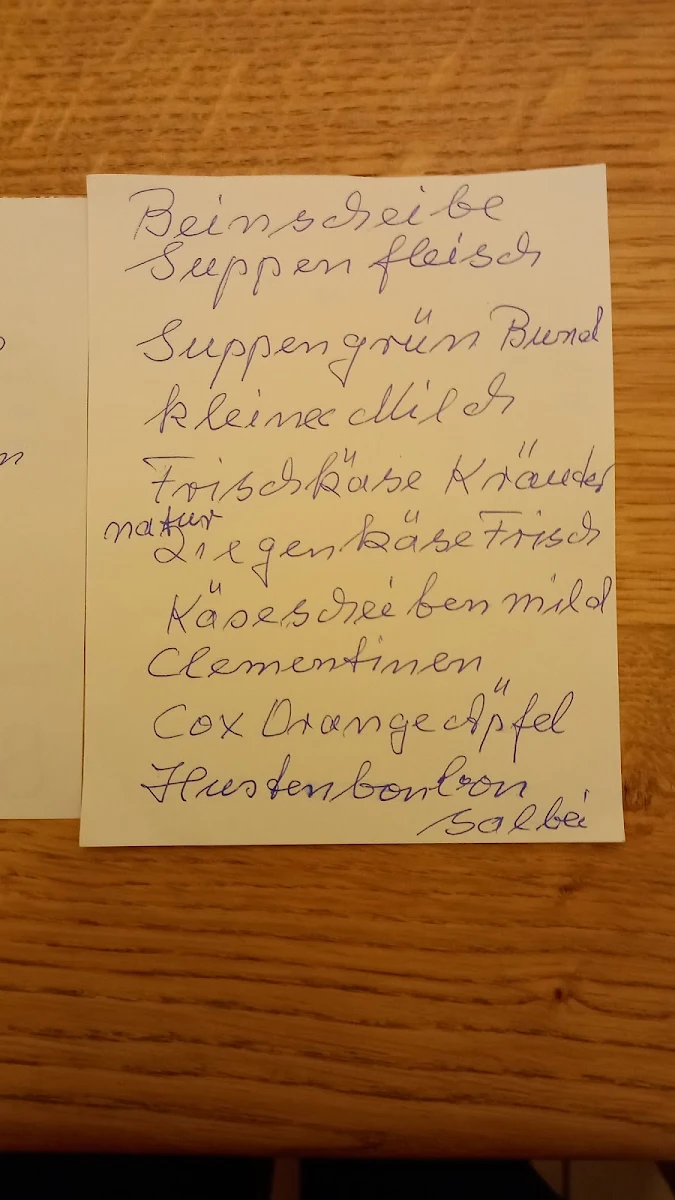 Beinscheibe
Suppenfleisch
Suppengrün Bund
kleine Milch
Frischkäse Kräuter
natur
Ziegenkäse Frisch
Käsescheiben mild
Clementinen
Cox Orange Äpfel
Hustenbonbon
Salbei